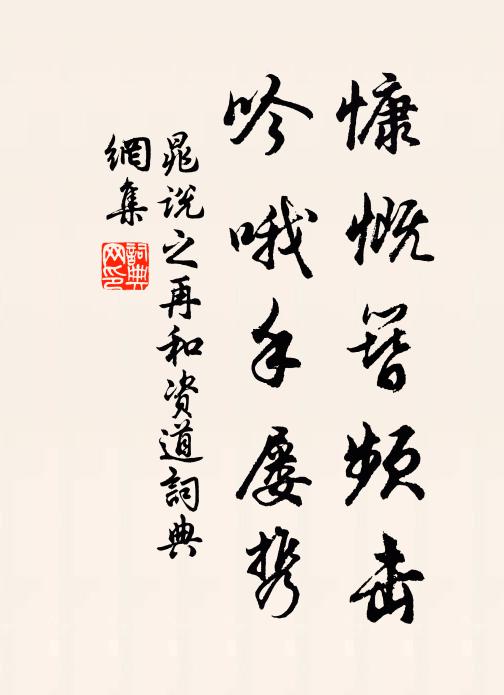 慷慨簪频击
吟哦手屡携
晁说之再和资道詞典
網集
詞典網印